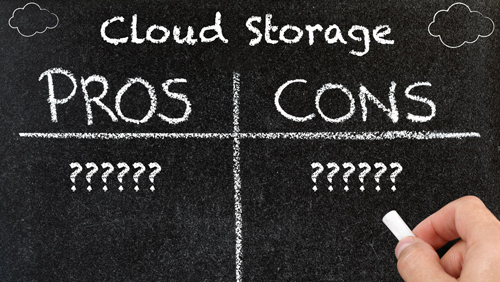 Cloud Storage
PROS CONS
?????? ??????